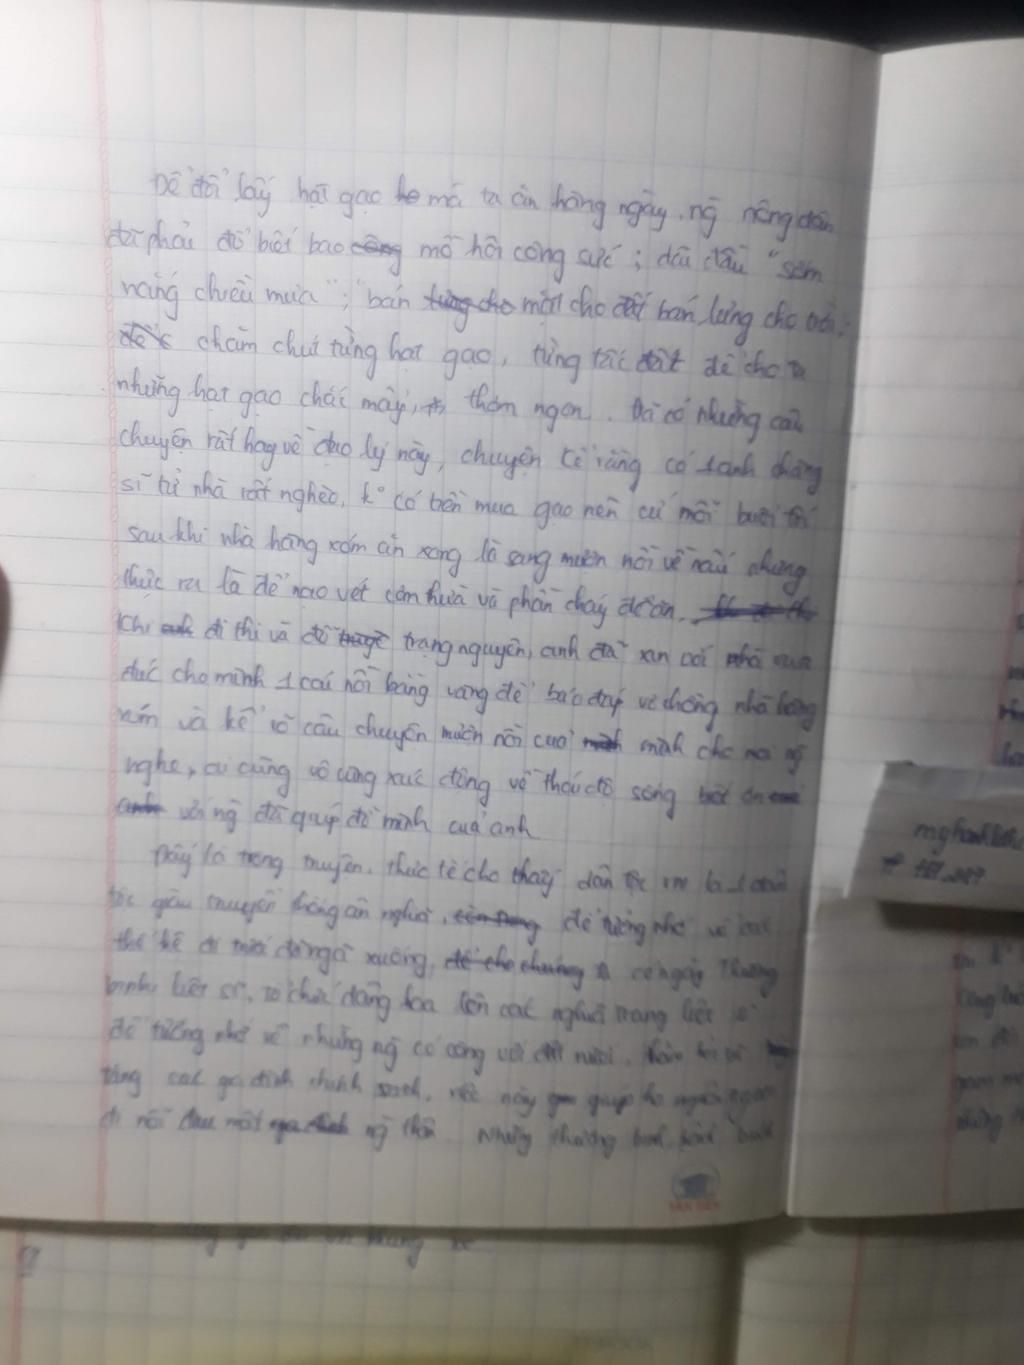 Để đổi lấy hạt gạo mà ta ăn hằng ngày, ng̃ nông dân
đã phải đổ biết bao mồ hôi công sức; dãi dầu "sớm
nắng chiều mưa"; "bán mặt cho đất bán lưng cho trời;
chăm chút từng hạt gạo, từng tấc đất để cho ta
những hạt gạo chắc mẩy, thơm ngon. Đã có những câu
chuyện rất hay về đạo lý này, chuyện kể rằng có 1 anh chàng
sĩ tử nhà rất nghèo, k° có tiền mua gạo nên cứ mỗi buổi tối
sau khi nhà hàng xóm ăn xong là sang mượn nồi về nấu nhưng
thực ra là để nạo vét cơm thừa và phần cháy để ăn.
Khi đi thi và đỗ trạng nguyên, anh đã xin với nhà vua
đúc cho mình 1 cái nồi bằng vàng để báo đáp vợ chồng nhà hàng
xóm và kể rõ câu chuyện mượn nồi của mình cho mọi ng̃
nghe, ai cũng vô cùng xúc động về thái độ sống biết ơn
với ng̃ đã giúp đỡ mình của anh
Đấy là trong truyện, thực tế cho thấy dân tộc là 1 dân
tộc giàu truyền thống ân nghĩa, để tưởng nhớ về các
thế hệ đi trước đã ngã xuống, có ngày Thương
binh liệt sĩ, tổ chức dâng hoa lên các nghĩa trang liệt sĩ
để tưởng nhớ về những ng̃ có công với đất nước,
tặng các gia đình chính sách, việc này giúp họ nguôi ngoai
đi nỗi đau mất ng̃ thân. Những thương binh
mghanh